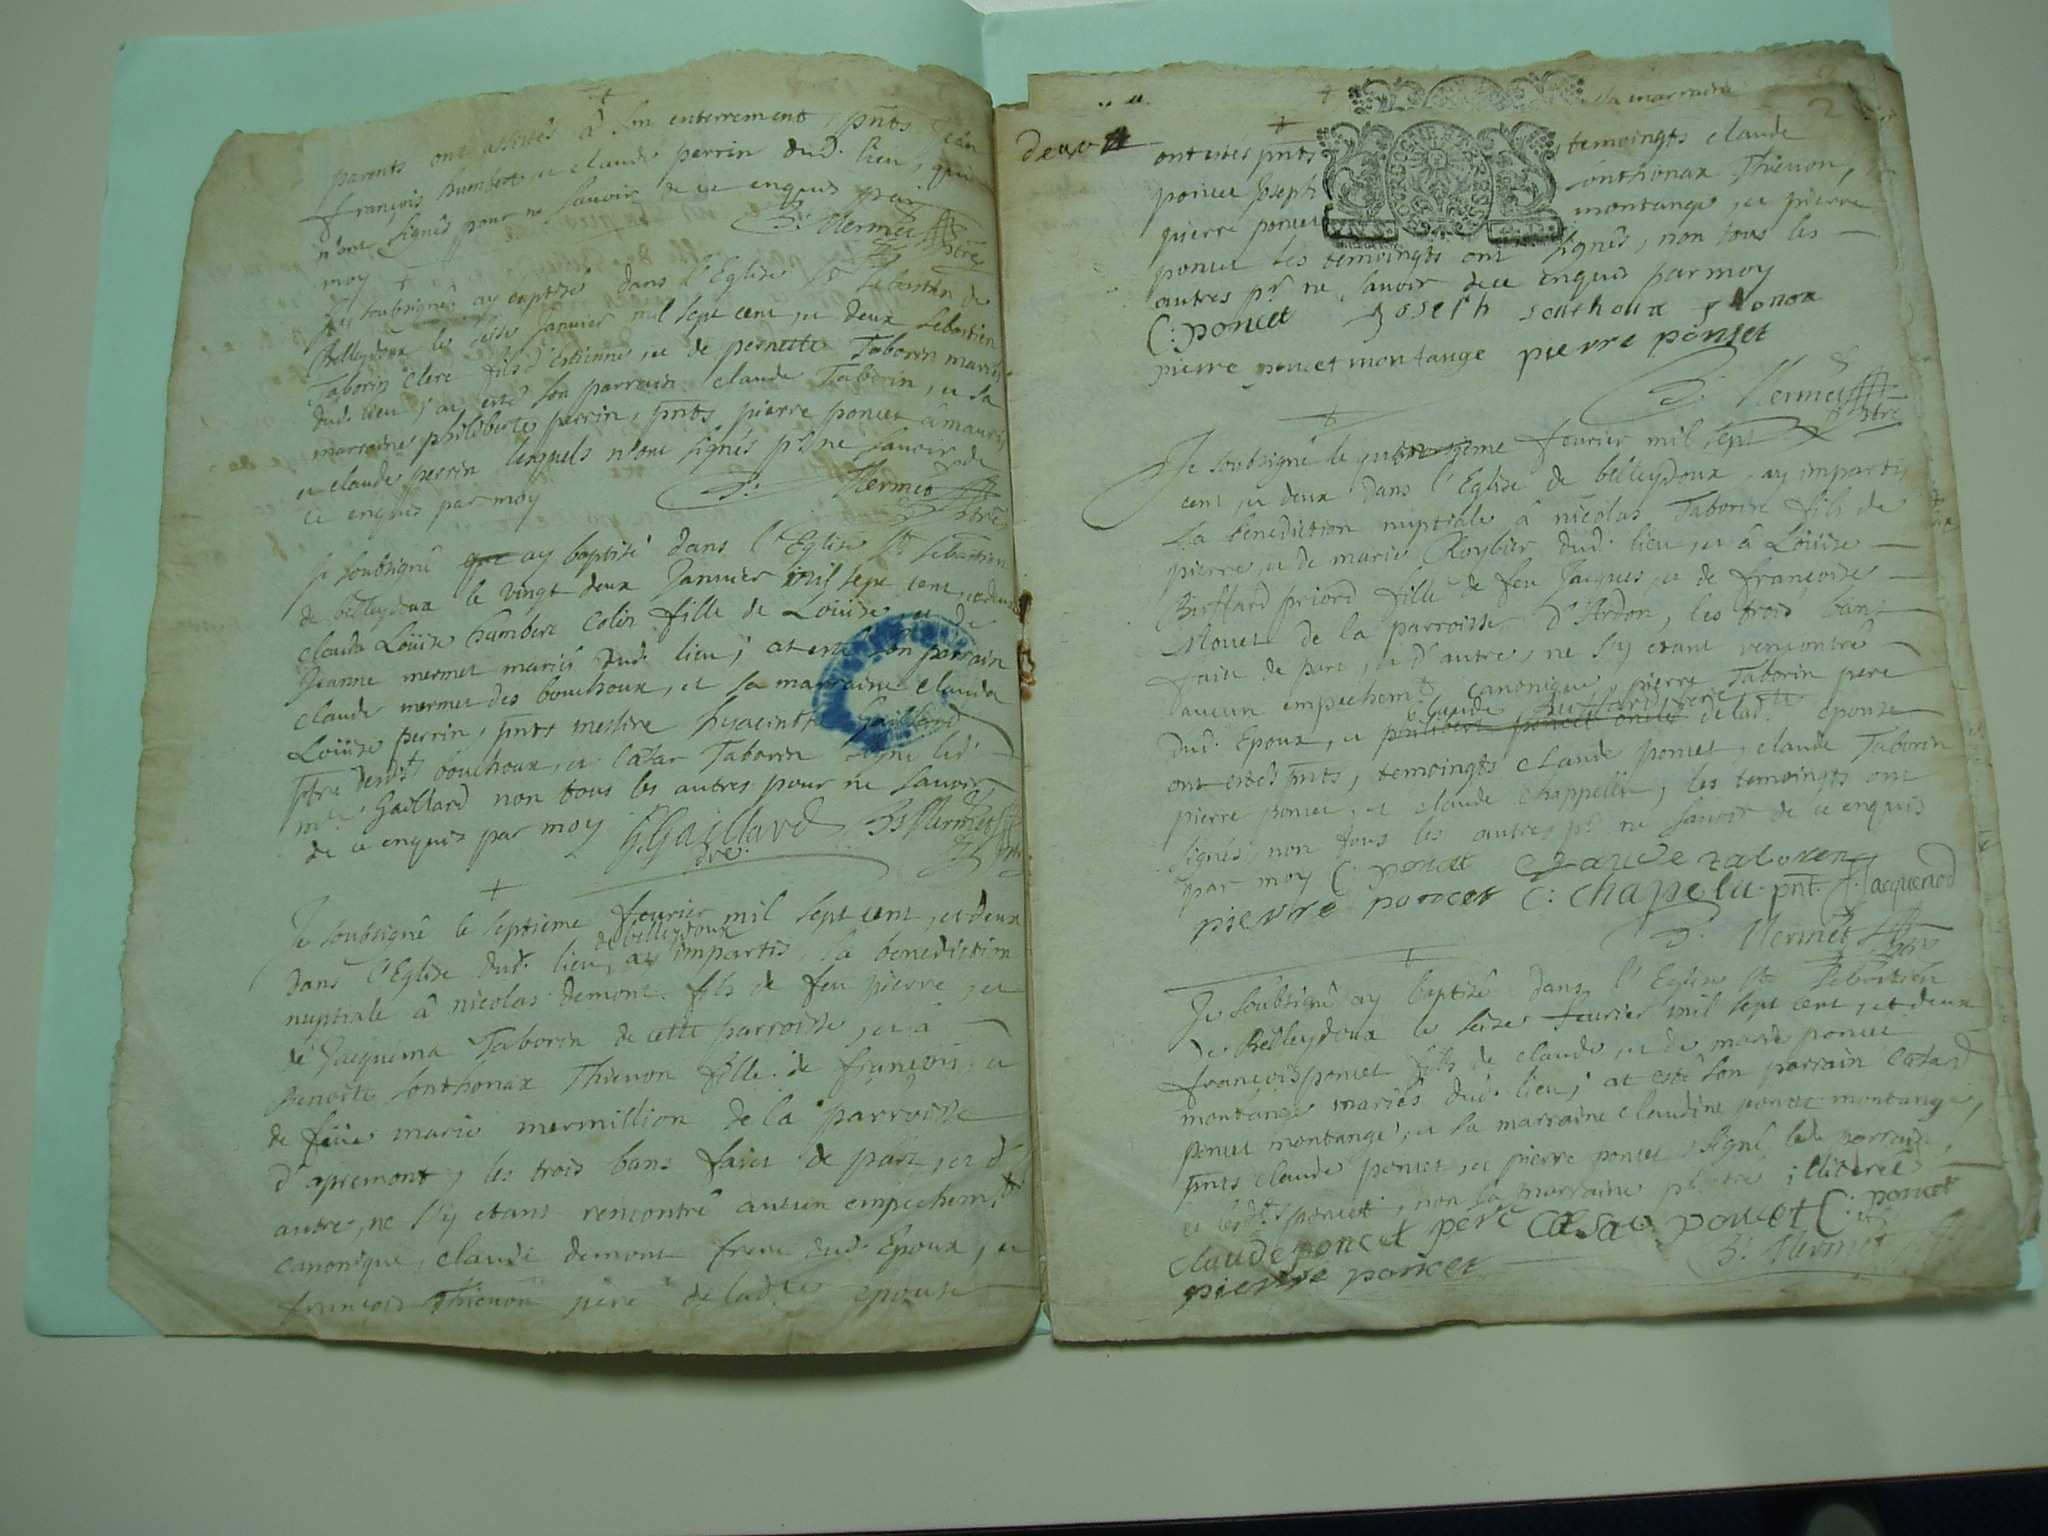 parents ont assistés â son enterrement, pnts Jean
françois humbert, et claude perrin dud. lieu, qui
n'ont signés pour ne savoir de ce enquis par
moy B: Mermet ptre
Je soubsigné ay baptisé dans l'Eglise St Sebastien de
Belleydoux le seise Janvier mil sept cent, et deux sebastien
Taborin clerc fils d'estienne, et de pernette Taborin mariés
dud. lieu; at esté son parrain claude Taborin, et sa
marraine philiberte perrin, pnts pierre poncet
et claude perrin lesquels n'ont signés pr ne savoir de
ce enquis par moy B: Mermet ptre
Je soubsigné ay baptisé dans l'Eglise St sebastien
de belleydoux le vingt deux Janvier mil sept cent, et deux
clauda Loüise humbert colin fille de Loüis, et de
Jeanne mermet mariés dud. lieu; at esté son parrain
claude mermet des bouchoux, et sa marraine clauda
Loüise perrin, pnts messire hyacinthe Gaillard
ptre desdt bouchoux, et Cæsar Taborin signé led.
mre Gaillard non tous les autres pour ne savoir
de ce enquis par moy h. Gaillard B: Mermet
ptre
Je soubsigné le septieme fevrier mil sept cent, et deux
de belleydoux
dans l'Eglise dud. lieu, ay impartis la benediction
nuptiale â nicolas demont fils de feu pierre, et
de Jacquema Taborin de cette parroisse, et â
Benoite sonthonax Thievon fille de françois, et
de feüe marie mermillion de la parroisse
d'apremont, les trois bans faict de part, et d'
autre, ne s'y etant rencontré aucun empechemt
canonique, claude demont frere dud. Epoux, et
françois Thievon pere de ladte epouse
deux
2
ont estés pnts, temoingts claude
poncet Joseph sonthonax Thievon,
pierre poncet montange, et pierre
poncet les temoingts ont signés, non tous les
autres pr ne savoir de ce enquis par moy
C: poncet Joseph sonthonax
pierre poncet montange pierre ponset
B: Mermet ptre
Je soubsigné le fevrier mil sept
cent, et deux dans l'Eglise de belleydoux, ay impartis
la benediction nuptiale â nicolas Taborin fils de
pierre, et de marie Roybier dud. lieu, et â Loüise
Buffard priord fille de feu Jacques, et de françoise
Mouet de la parroisse d'Ardon, les trois bans
faict de part, et d'autre, ne s'y etant rencontré
aucun empechemt canonique, pierre Taborin pere
Claude Buffard frere
dud. Epoux, et philibert poncet oncle de lad. epouse
ont estés pnts, temoingts claude poncet, claude Taborin
pierre poncet, et claude chappellu, les temoingts ont
signés, non tous les autres pr ne savoir de ce enquis
par moy C: poncet Claude taboren
pierre poncet C: chapelu pnt. Jacquenod
B: Mermet ptre
Je soubsigné ay baptisé dans l'Eglise St Sebastien
de Belleydoux le seise fevrier mil sept cent, et deux
françois poncet fils de claude, et de marie poncet
montange mariés dud. lieu; at esté son parrain Cæsard
poncet montange, et sa marraine claudine poncet montange,
pnts claude poncet, et pierre poncet, signé led. parrain,
et lesdts poncet, non la marraine pr etre illiterée
claude poncet pere Cæsar poncet C: poncet
pierre poncet B: Mermet